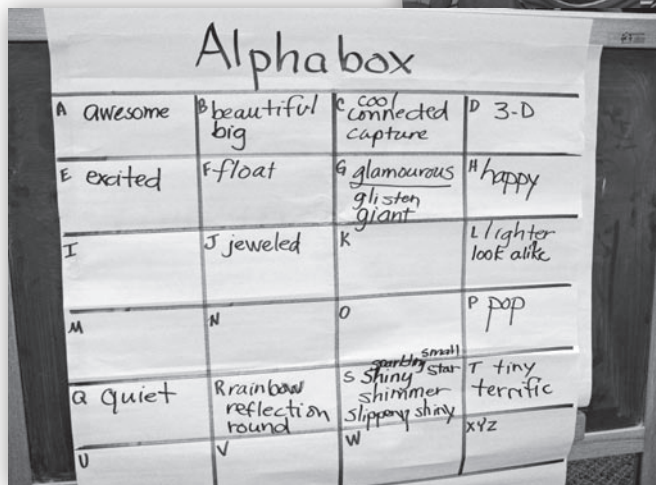 Alphabox
A awesome
B beautiful
big
C cool
connected
capture
D 3-D
E excited
F float
G glamourous
glisten
giant
H happy
I
J jeweled
K
L lighter
look alike
M
N
O
P pop
Q quiet
R rainbow
reflection
round
small
S shiny star
shimmer
slippery shiny
T tiny
terrific
U
V
W
XYZ